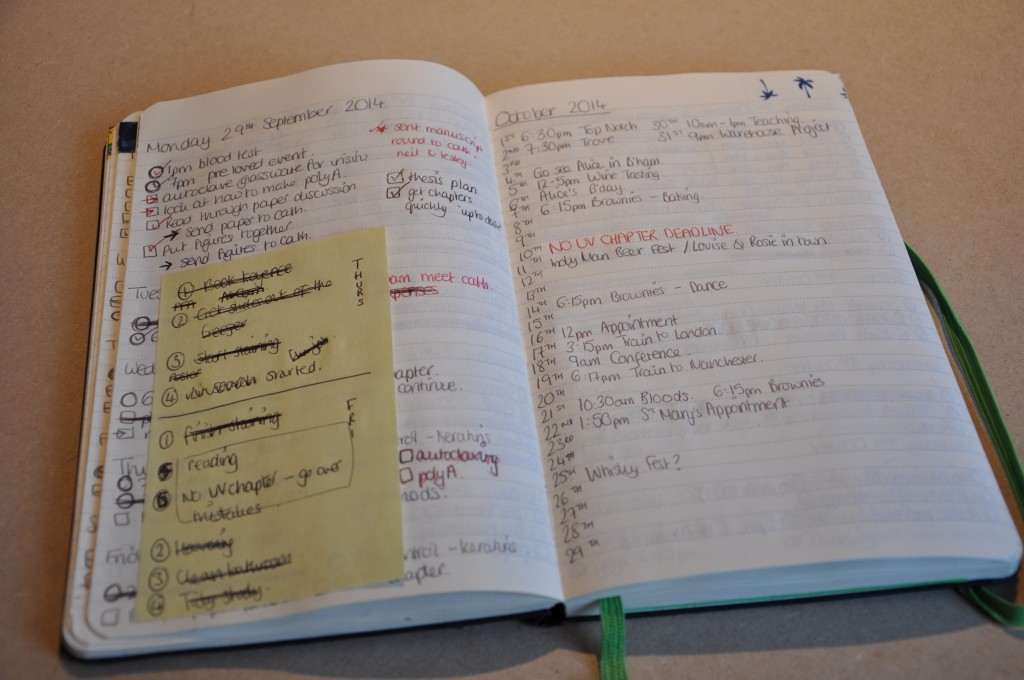 Monday 29th September 2014
1pm blood test
7pm pre loved event.
autoclave glassware for insitu
look at how to make polyA.
Read through paper discussion
→ send paper to cath.
Put figures together
→ send figures to cath.
sent manuscript
round to cath
neil & lesley.
thesis plan
get chapters
quickly 'upto date'
Tues
am meet cath.
Wed
apter.
continue.
Thu
rol - Keratins
autoclaving
polyA.
hods.
Frid
ntrol - keratins
apter.
THURS
①
②
Get slides out of the
③ Start staining
④ winsearch started.
FRI
① Finish staining
reading
No UV chapter - go over
mistakes.
②
③ Clean bathroom
④ Tidy study.
October 2014
1st 6:30pm Top Notch 30th 10am-1pm Teaching
2nd 7:30pm Trove 31st 9pm Warehouse Project
3rd
4th Go see Alice in B'ham.
5th 12-5pm Wine Tasting
6th Alice's B'day.
7th 6:15pm Brownies - Baking
8th
9th
10th NO UV CHAPTER DEADLINE
11th Indy Man Beer Fest / Louise & Rosie in town.
12th
13th
14th 6:15pm Brownies - Dance
15th
16th 12pm Appointment
17th 3:15pm Train to London.
18th 9am Conference
19th 6:17pm Train to Manchester.
20th
21st 10:30am Bloods. 6:15pm Brownies
22nd 1:50pm St Mary's Appointment
23rd
24th
25th Whisky Fest?
26th
27th
28th
29th